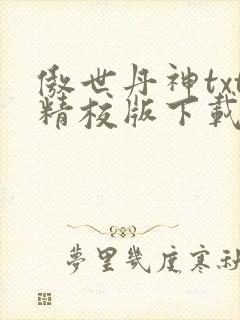 傲世丹神txt
精校版下載
夢里幾度寒秋